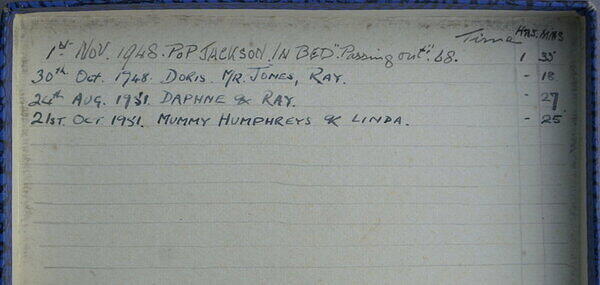 Time HRS. MINS
1st NOV. 1948. POP JACKSON. IN BED "Passing out". 68. 1 35
30th OCT. 1948. DORIS. MR. JONES, RAY. - 18
24th AUG. 1951. DAPHNE & RAY. - 27
21ST. OCT 1951. MUMMY HUMPHREYS & LINDA. - 25